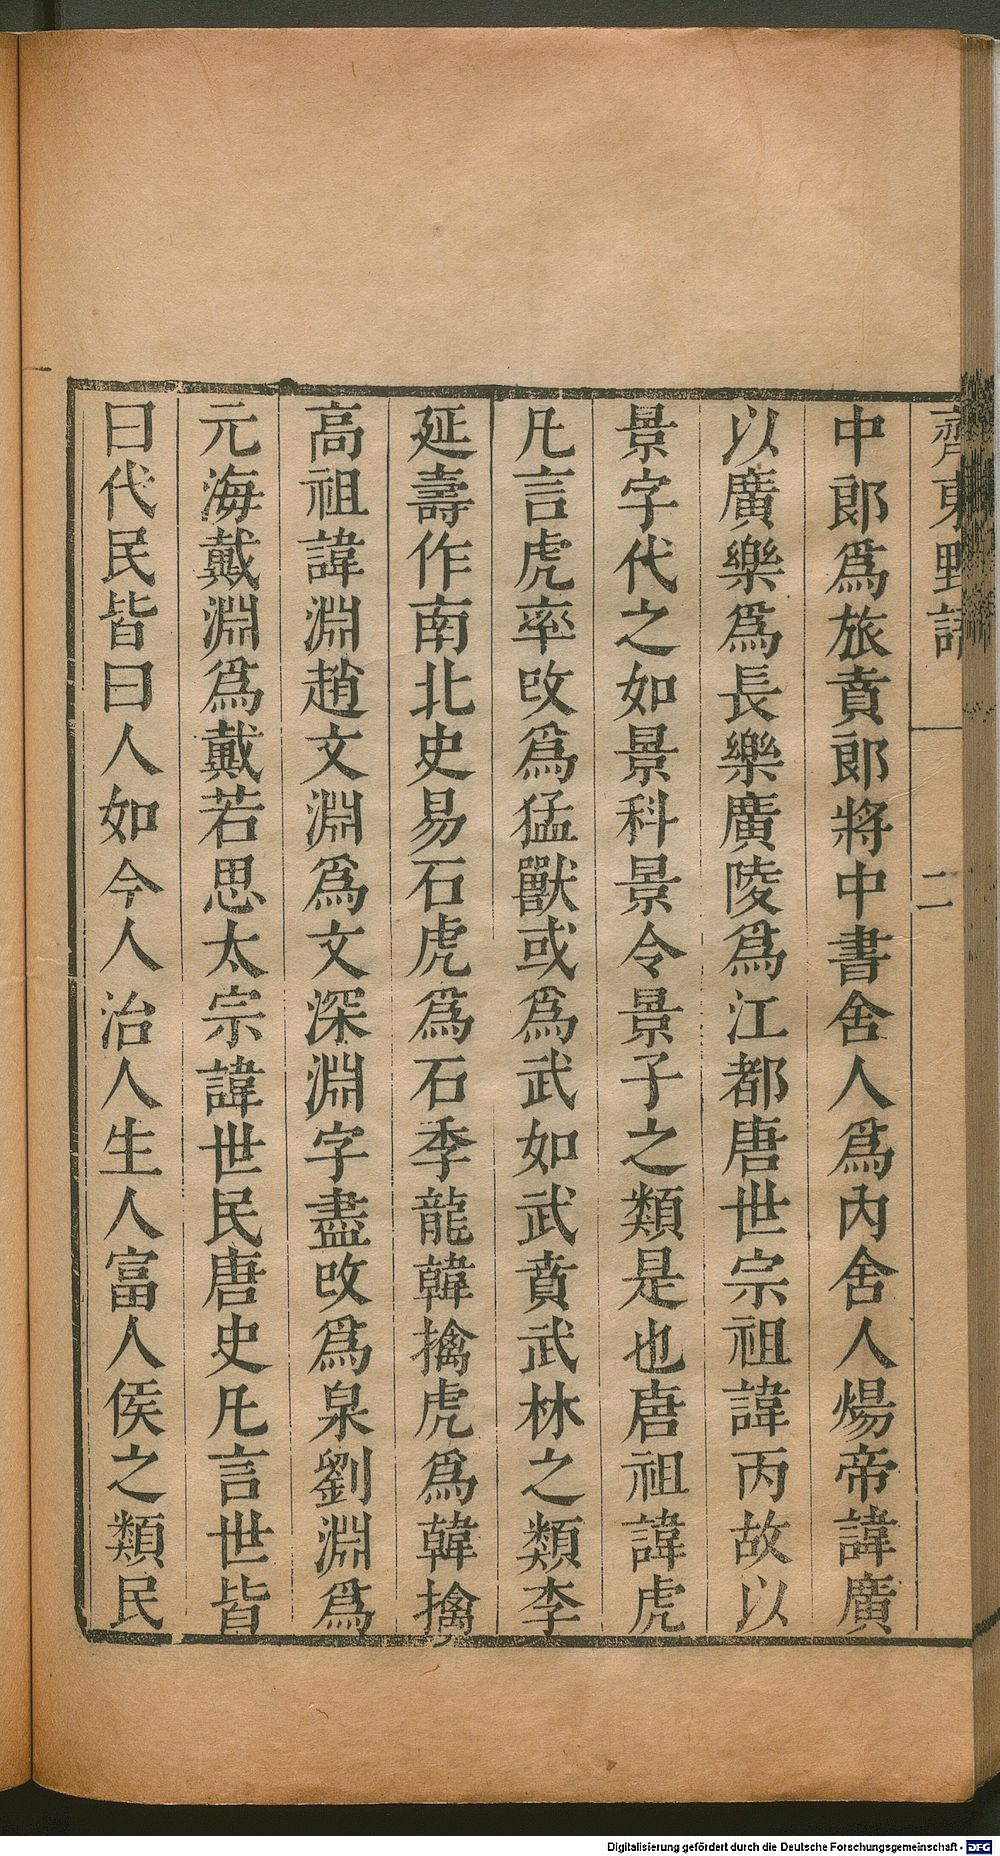 齊東野語
二
中郎爲旅賁郎將中書舍人爲內舍人煬帝諱廣
以廣樂爲長樂廣陵爲江都唐世宗祖諱丙故以
景字代之如景科景令景子之類是也唐祖諱虎
凡言虎率改爲猛獸或爲武如武賁武林之類李
延壽作南北史易石虎爲石季龍韓擒虎爲韓擒
高祖諱淵趙文淵爲文深淵字盡改爲泉劉淵爲
元海戴淵爲戴若思太宗諱世民唐史凡言世皆
曰代民皆曰人如今人治人生人富人侯之類民
Digitalisierung gefördert durch die Deutsche Forschungsgemeinschaft - DFG